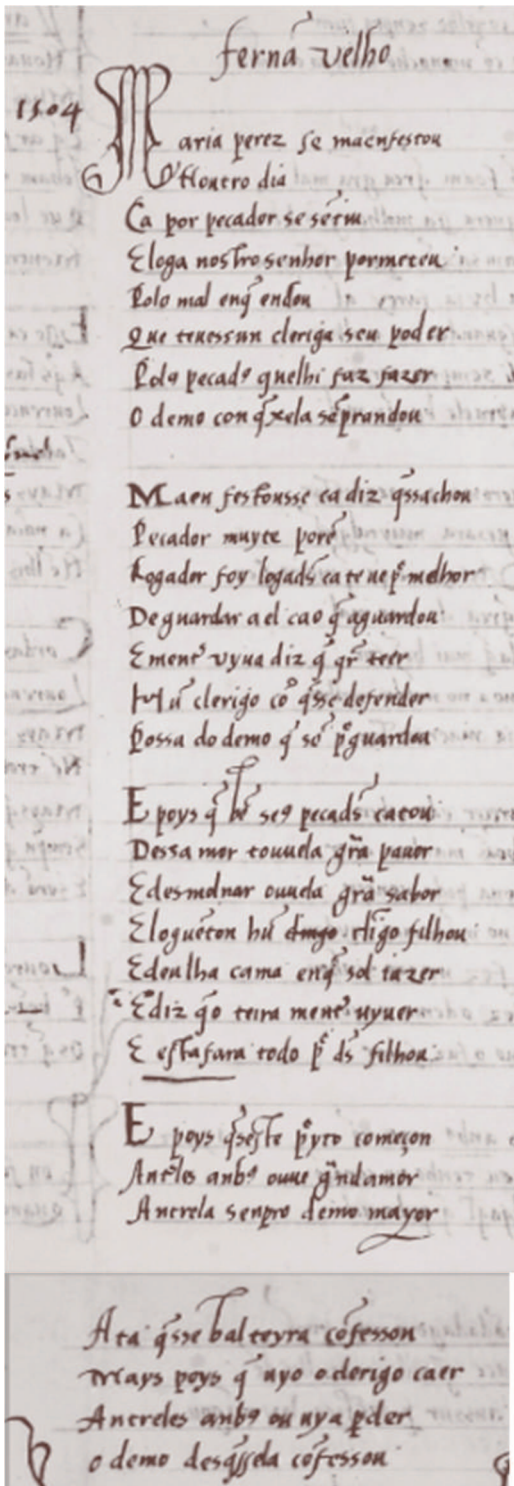 fernã velho
1504
Maria perez se maenfestou
Noutro dia
Ca por pecador se sẽtiu
E loga nostro senhor pormeteu
Polo mal enq̃ andou
Que teuessun cleriga seu poder
Polꝯ pecadꝯ quelhi faz fazer
O demo con q̃xela sẽprandou
Maen festousse ca diz q̃ssachou
Pecador muyte porẽ
Rogador foy logads ca teue melhor
De guardar a el cao q̃ aguardou
E ment̃ uyua diz q̃ q̃r teer
Hũ clerigo cõ q̃sse defender
Possa do demo q̃ sẽp guardou
E poys q̃ bẽ seꝯ pecads catou
Dessa mor touuela grã pauor
E desmolnar ouuela grã sabor
E loguẽton hũ cligo filhou
E deulha cama enq̃ sol iazer
E diz q̃o terra ment̃ uyuer
E estafara todo p̃ ds filhou
E poys q̃seste p̃yto começou
Antrles anbꝯ ouue grãndamor
Antrela senpro demo mayor
Ata q̃sse balteyra cõfessou
Mays poys q̃ uyo o clerigo caer
Antreles anbꝯ ou uya p̃der
o demo desq̃ssela cõfessou